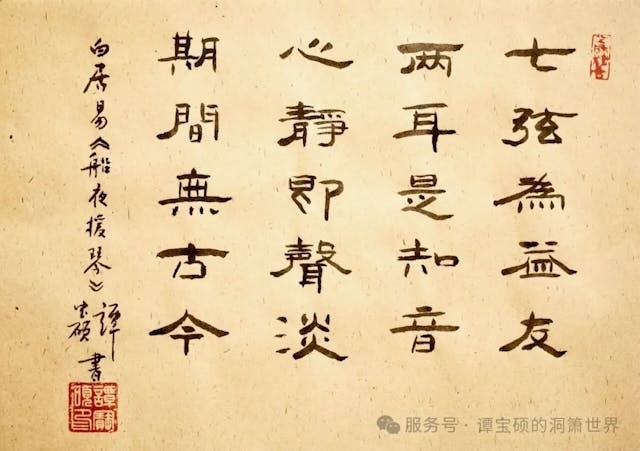 七弦為益友
两耳是知音
心靜即聲淡
期間無古今
白居易《船夜援琴》
譚宝硕書
譚寶碩印
服务号·谭宝硕的洞箫世界